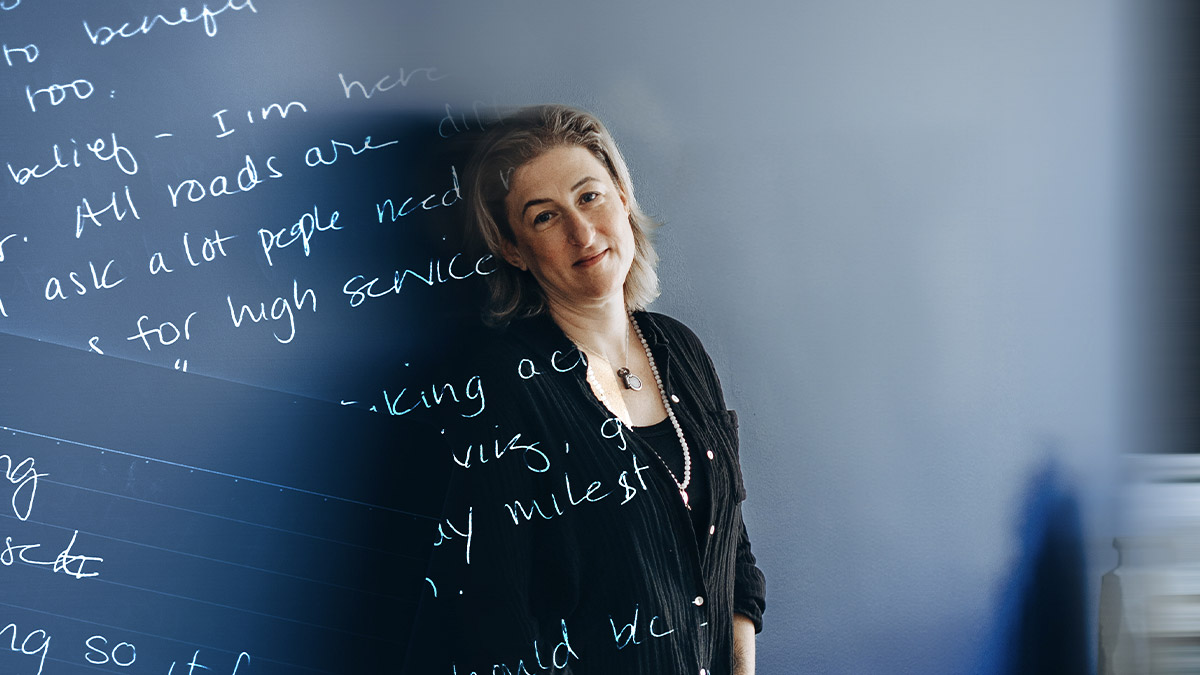 to benefit
too.
belief - I'm here
All roads are diff
ask a lot people need
s for high service
king ac
milest
ng
ng so it
hould b/c -